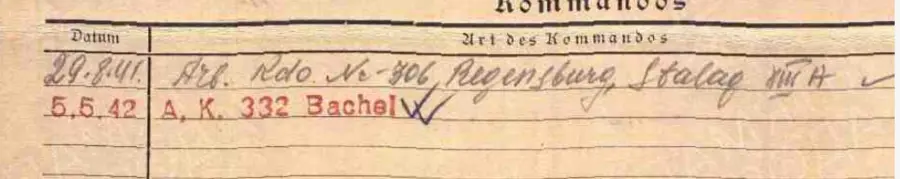 Kommandos
Datum Art des Kommandos
29.8.41. Arb. Kdo. No-706, Regensburg, Stalag XIII A
5.5.42 A. K. 332 Bachel